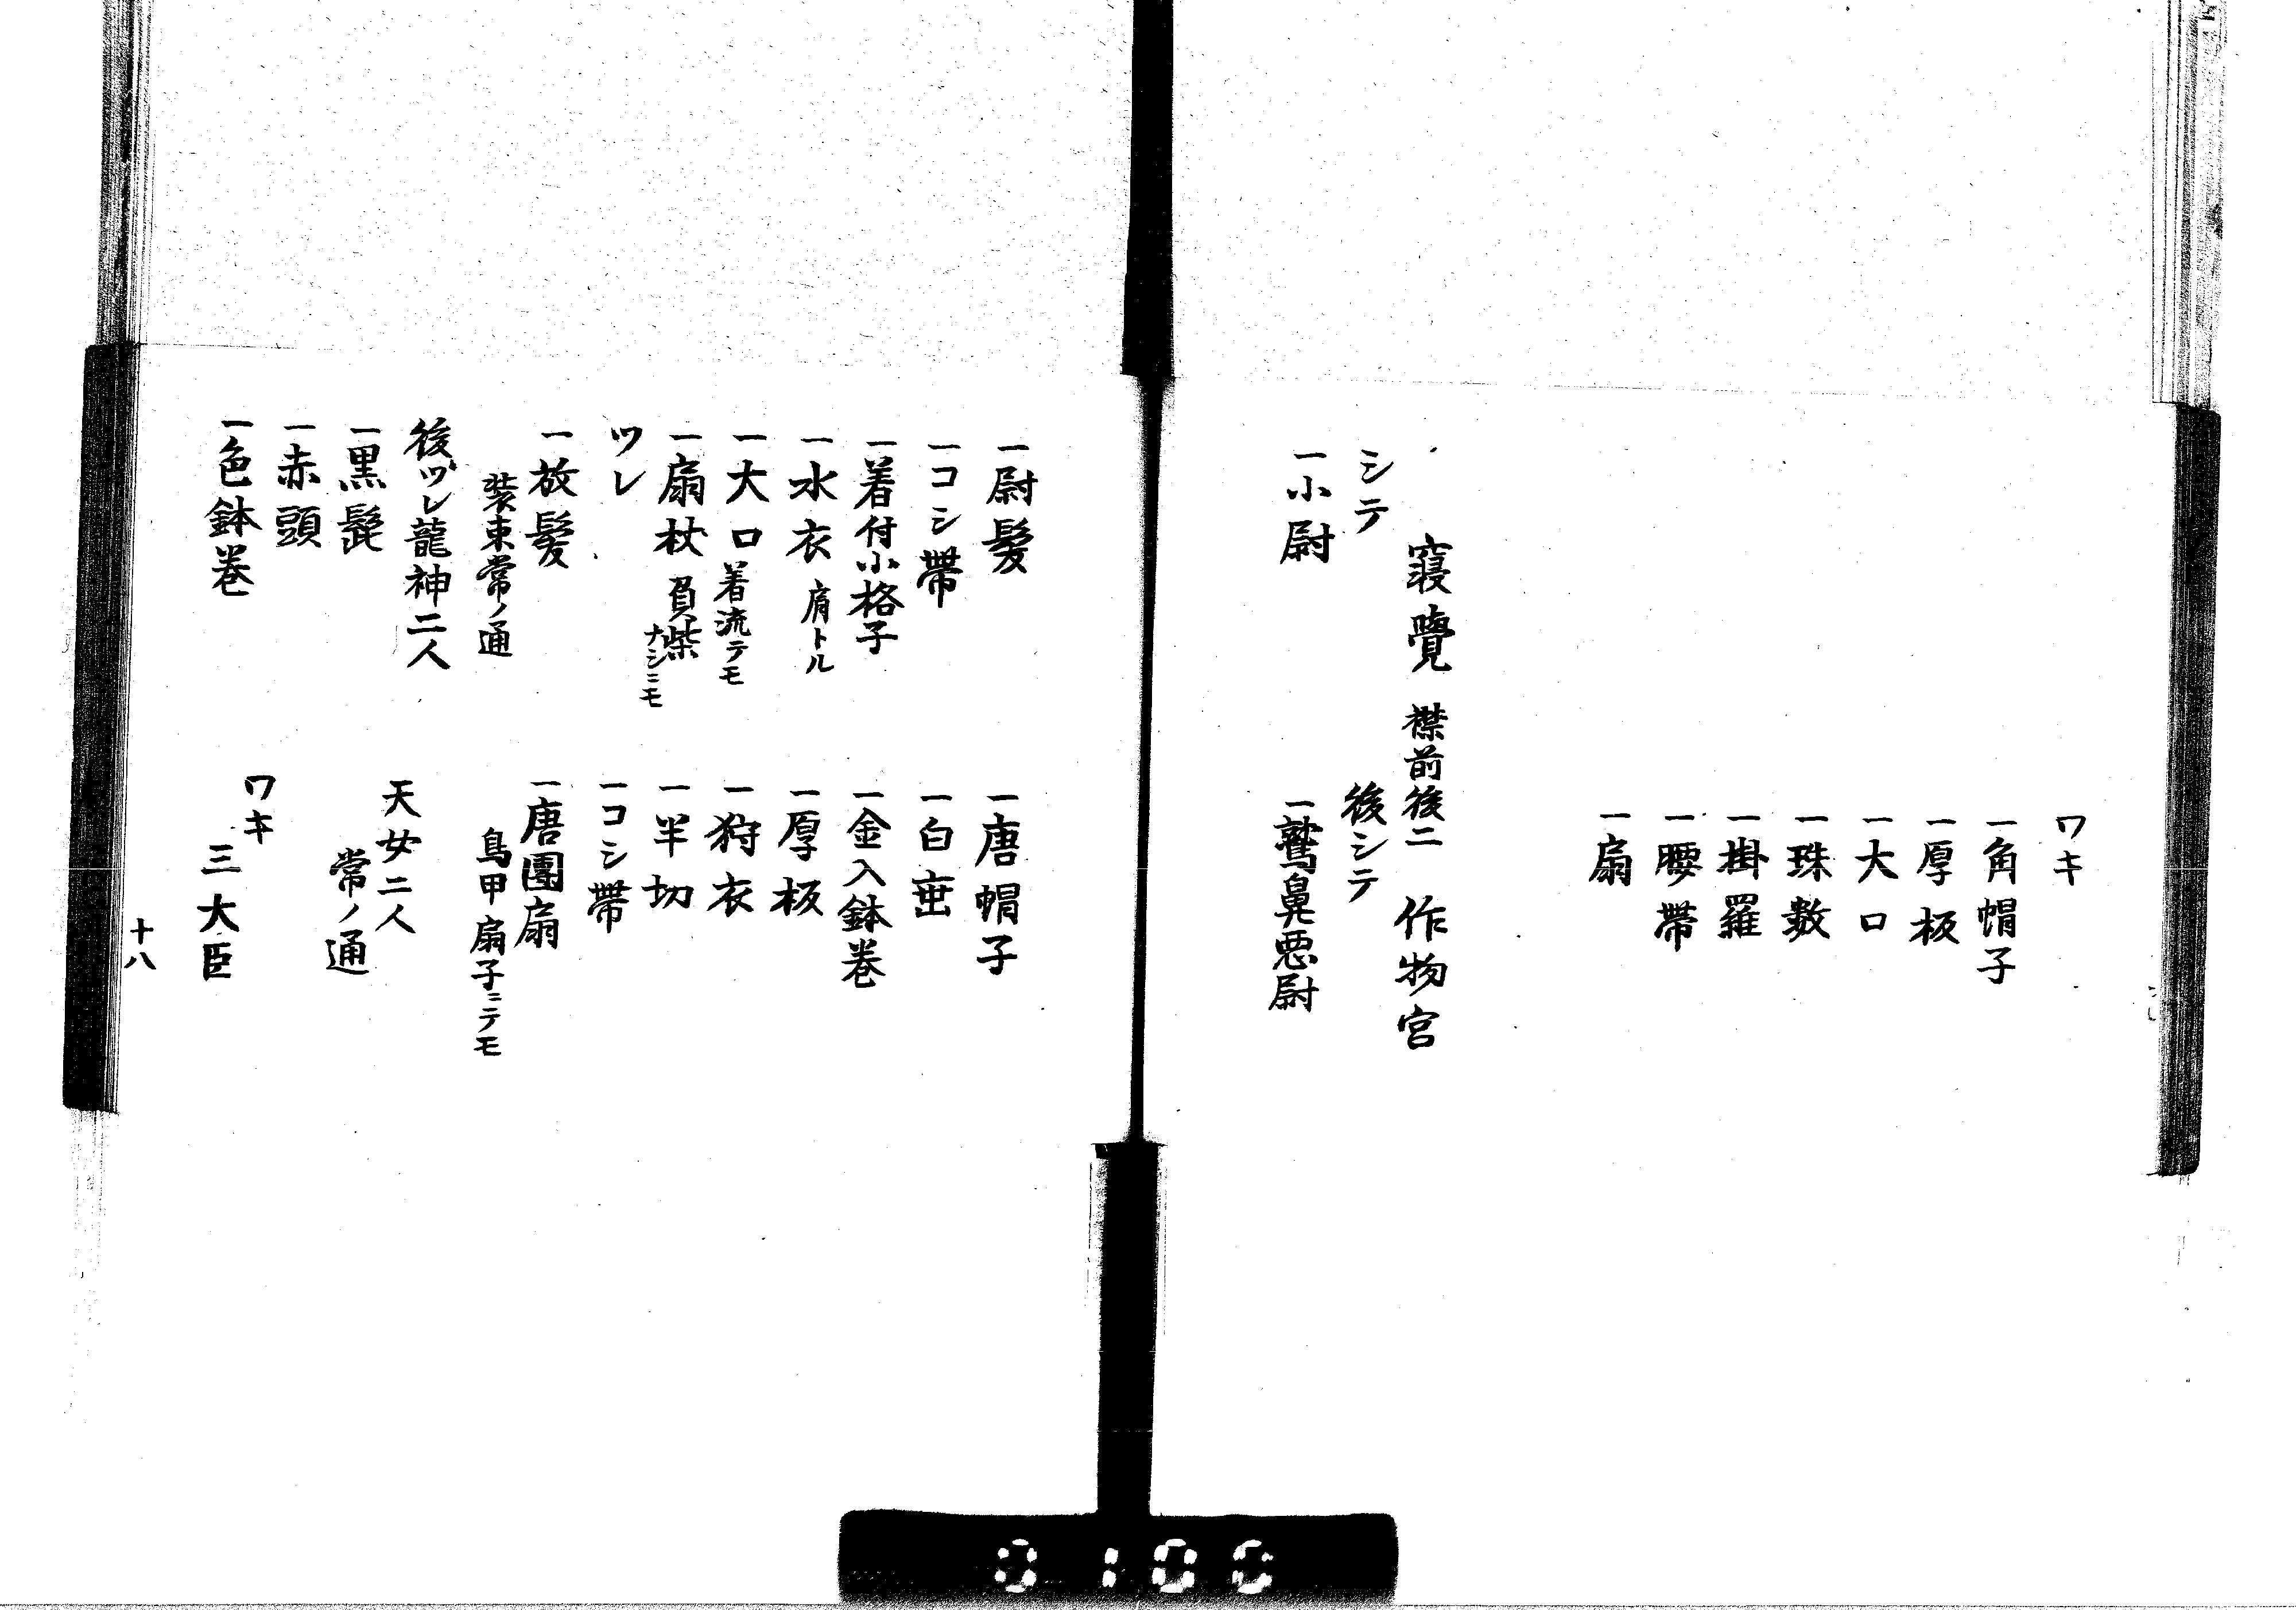 ワキ
一角帽子
一厚板
一大口
一珠数
一掛羅
一腰帶
一扇
寢覺 襟前後二 作物宮
シテ
一小尉
後シテ
一鷲鼻悪尉
一尉髮
一コシ帶
一着付小格子
一水衣 肩トル
一大口 着流テモ
一扇杖 負柴ナシニモ
ツレ
一放髮
装束常ノ通
後ヅレ龍神二人
一黒髭
一赤頭
一色鉢巻
一唐帽子
一白垂
一金入鉢巻
一厚板
一狩衣
一半切
一コシ帶
一唐團扇
鳥甲扇子ニテモ
天女二人
常ノ通
ワキ
三大臣
十八
0100